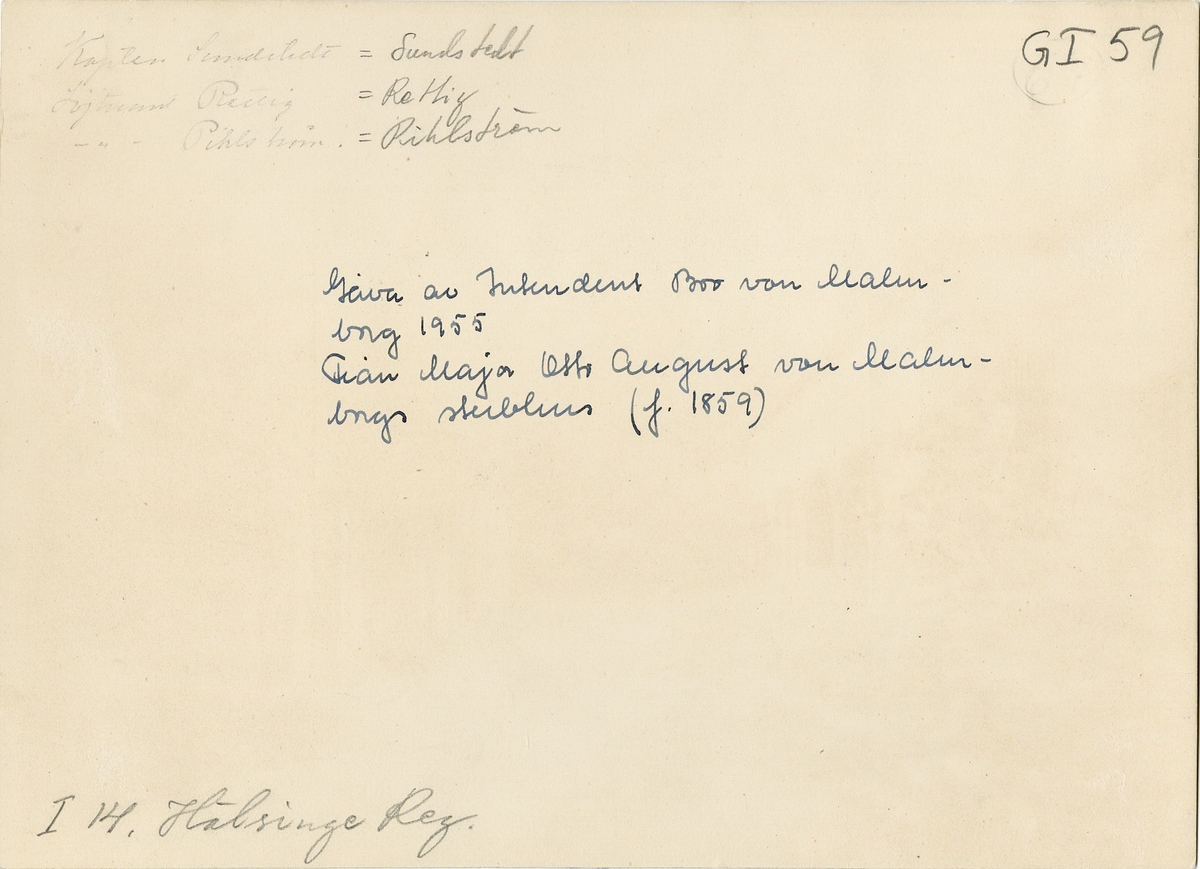 Kapten Sundstedt = Sundstedt
Löjtnant Rettig = Rettig
- " - Pihlström. = Pihlström
GI 59
Gåva av Intendent Boo von Malm-
borg 1955
Från Major Otto August von Malm-
borgs sterbhus (f. 1859)
I 14. Hälsinge Reg.